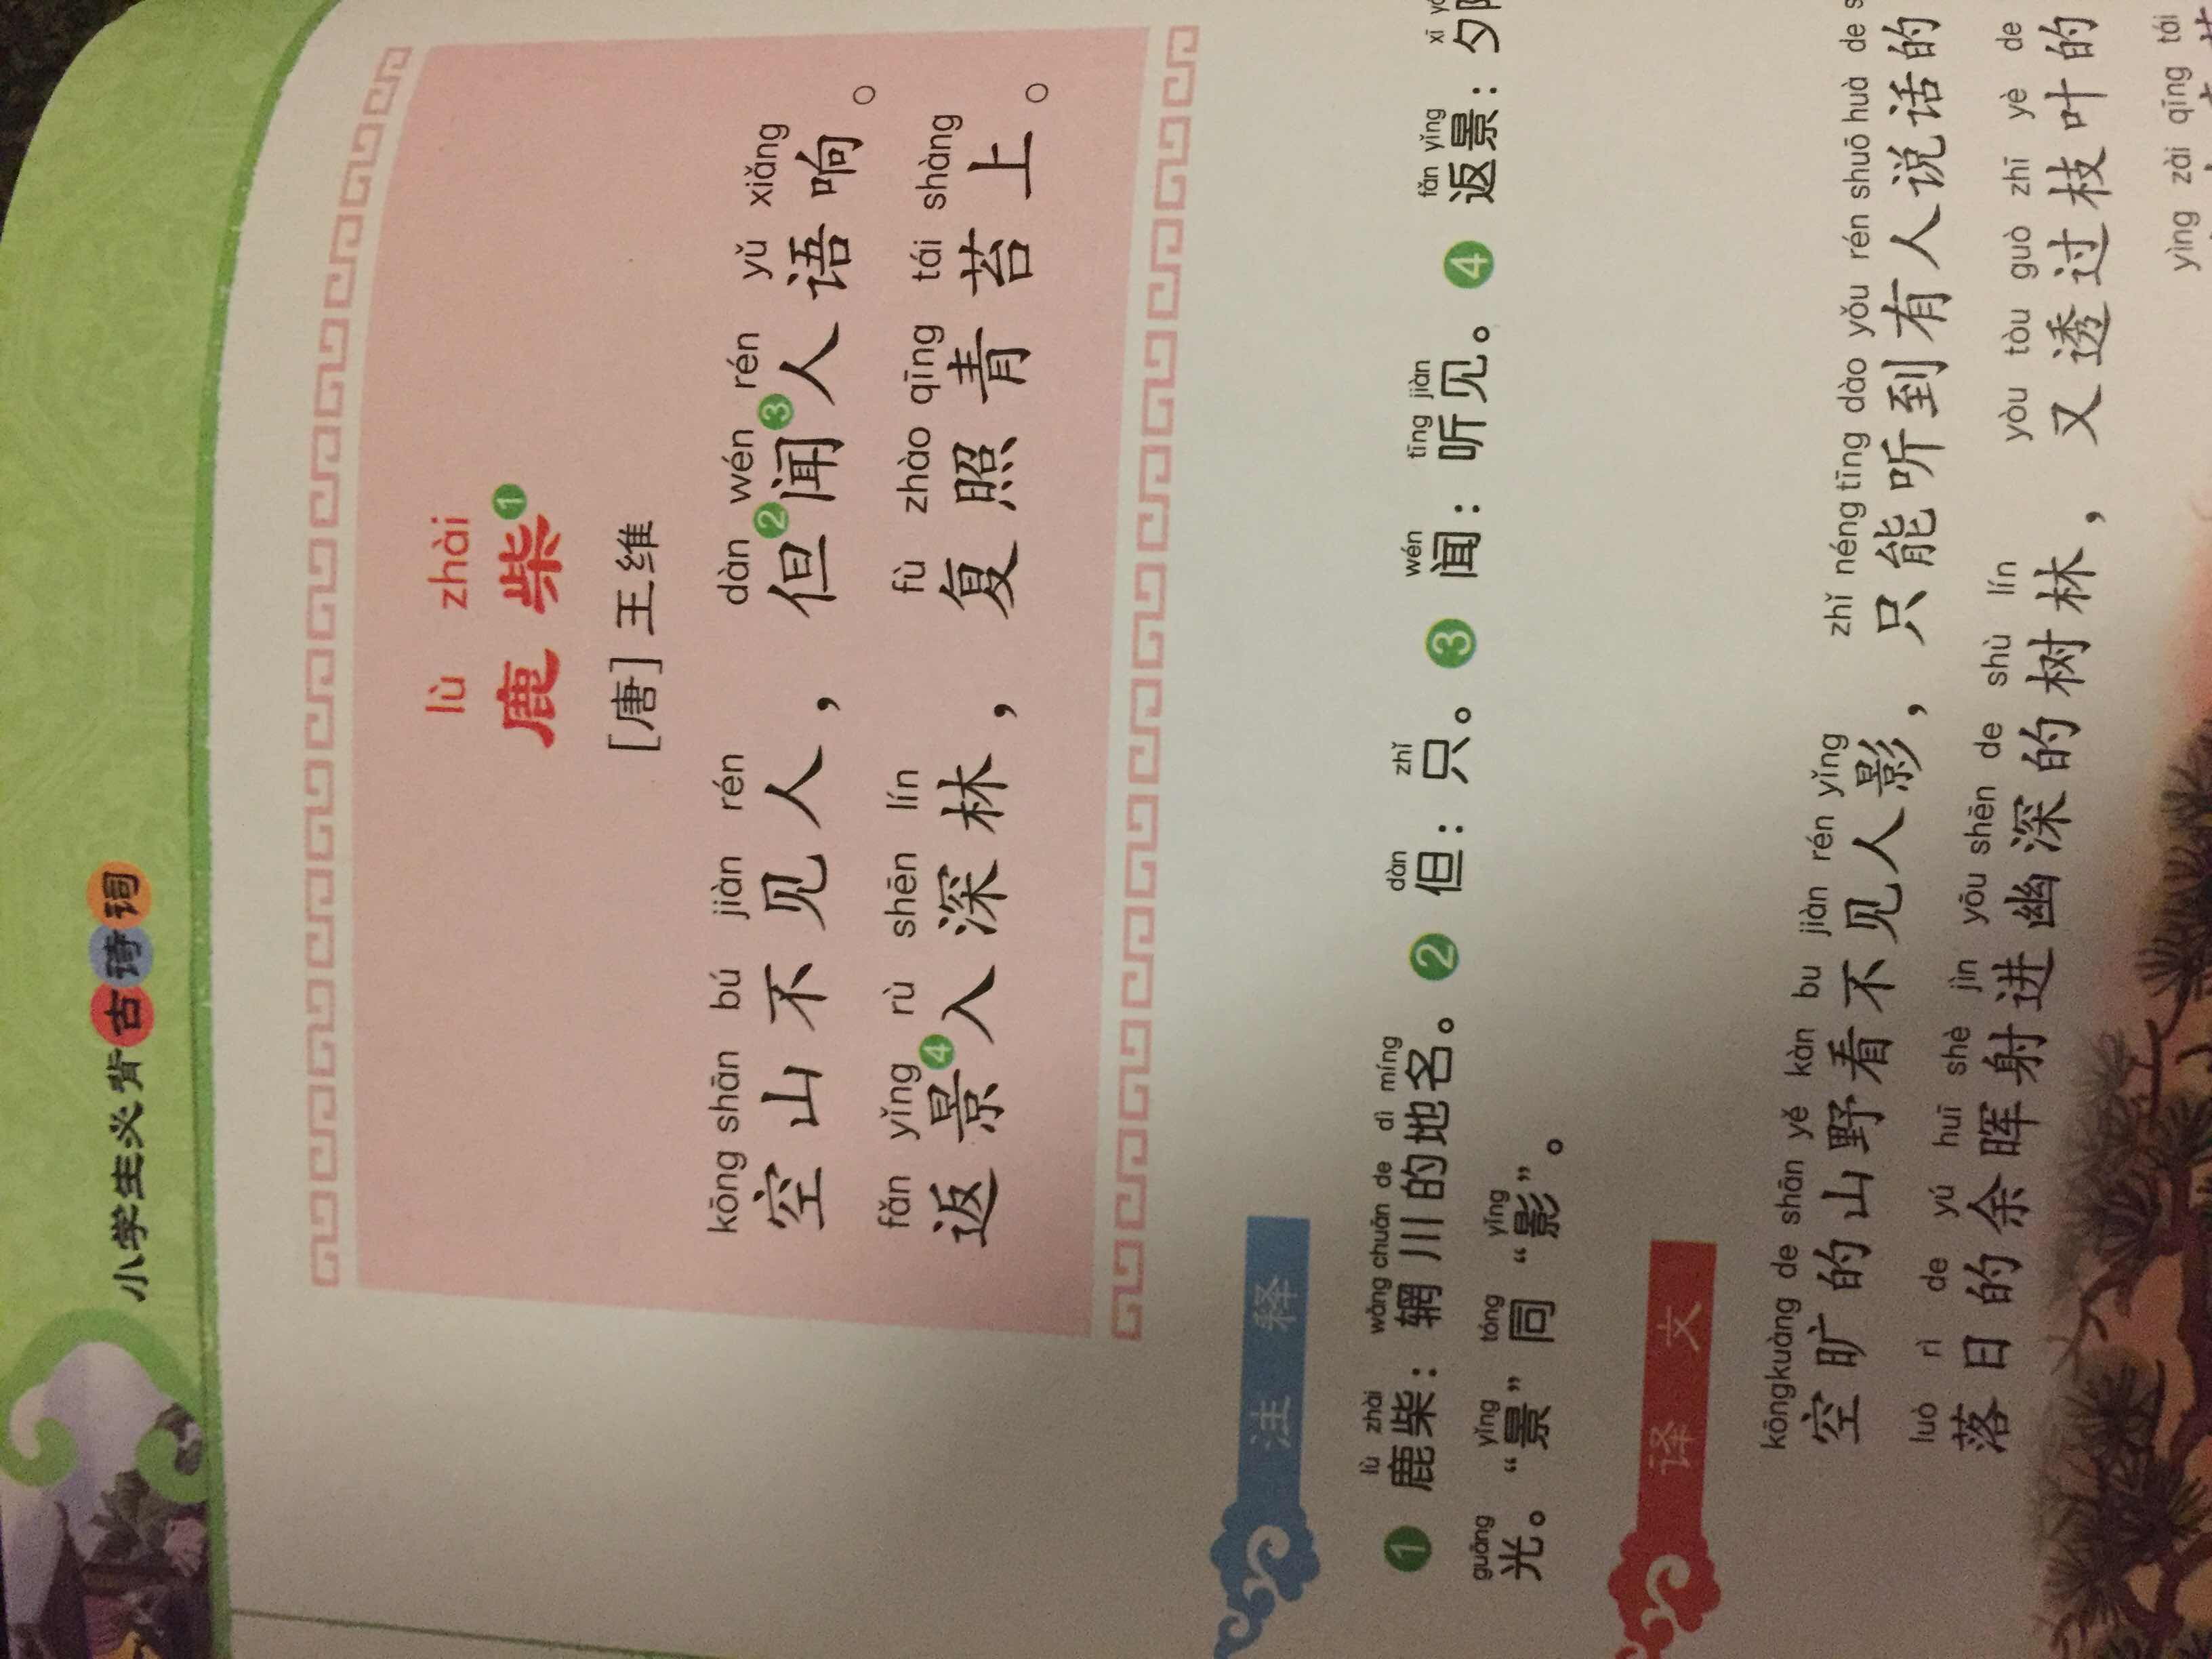 小学生必背古诗词
lù zhài
鹿柴❶
[唐]王维
kōng shān bú jiàn rén dàn wén rén yǔ xiǎng
空山不见人，但❷闻❸人语响。
fǎn yǐng rù shēn lín fù zhào qīng tái shàng
返景❹入深林，复照青苔上。
注释
lù zhài wǎng chuān de dì míng dàn zhǐ wén tīng jiàn fǎn yǐng xī
❶ 鹿柴：辋川的地名。❷ 但：只。❸ 闻：听见。❹ 返景：夕
guāng yǐng tóng yǐng
光。“景”同“影”。
译文
kōngkuàng de shān yě kàn bu jiàn rén yǐng zhǐ néng tīng dào yǒu rén shuō huà de
空旷的山野看不见人影，只能听到有人说话的
luò rì de yú huī shè jìn yōu shēn de shù lín yòu tòu guò zhī yè de
落日的余晖射进幽深的树林，又透过枝叶的
yìng zài qīng tái